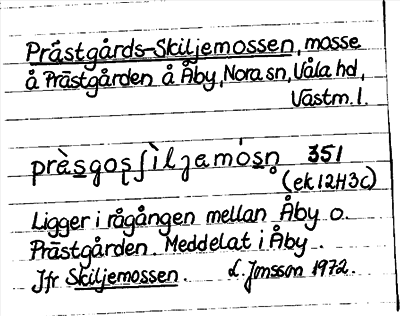 Prästgårds-Skiljemossen, mosse
å Prästgården å Åby, Nora sn, Våla hd,
Västm. l.
prὲsgoʂʃìljamósn̥ 351
(ek 12H3c)
Ligger i rågången mellan Åby o.
Prästgården. Meddelat i Åby.
Jfr Skiljemossen. L. Jonsson 1972.